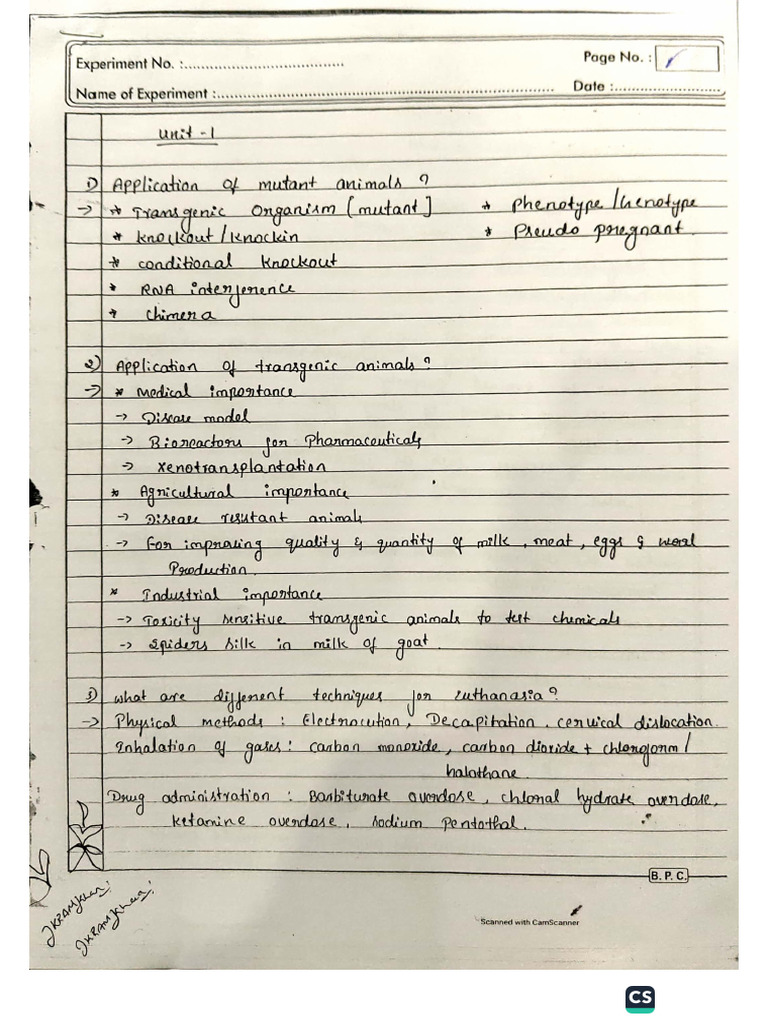 Experiment No. :....................................
Page No. :
Name of Experiment :............................................................................
Date :........................
Unit - 1
1) Application of mutant animals ?
-> * Transgenic Organism [mutant] * Phenotype / Genotype
* Knockout / Knockin * Pseudo pregnant.
* conditional knockout
* RNA interference
* chimera
2) Application of transgenic animals ?
-> * Medical importance
-> Disease model
-> Bioreactors for Pharmaceuticals
-> Xenotransplantation
* Agricultural importance
-> Disease resistant animals
-> For improving quality & quantity of milk, meat, eggs & wool
Production.
* Industrial importance
-> Toxicity sensitive transgenic animals to test chemicals
-> Spiders silk in milk of goat.
3) what are different techniques for Euthanasia ?
-> Physical methods : Electrocution, Decapitation, cervical dislocation.
Inhalation of gases : carbon monoxide, carbon dioxide + chloroform /
halothane.
Drug administration : Barbiturate overdose, chloral hydrate overdose,
ketamine overdose, sodium pentothal.
B. P. C.
IKRAMKhan
IKRAMKhan
Scanned with CamScanner
CS